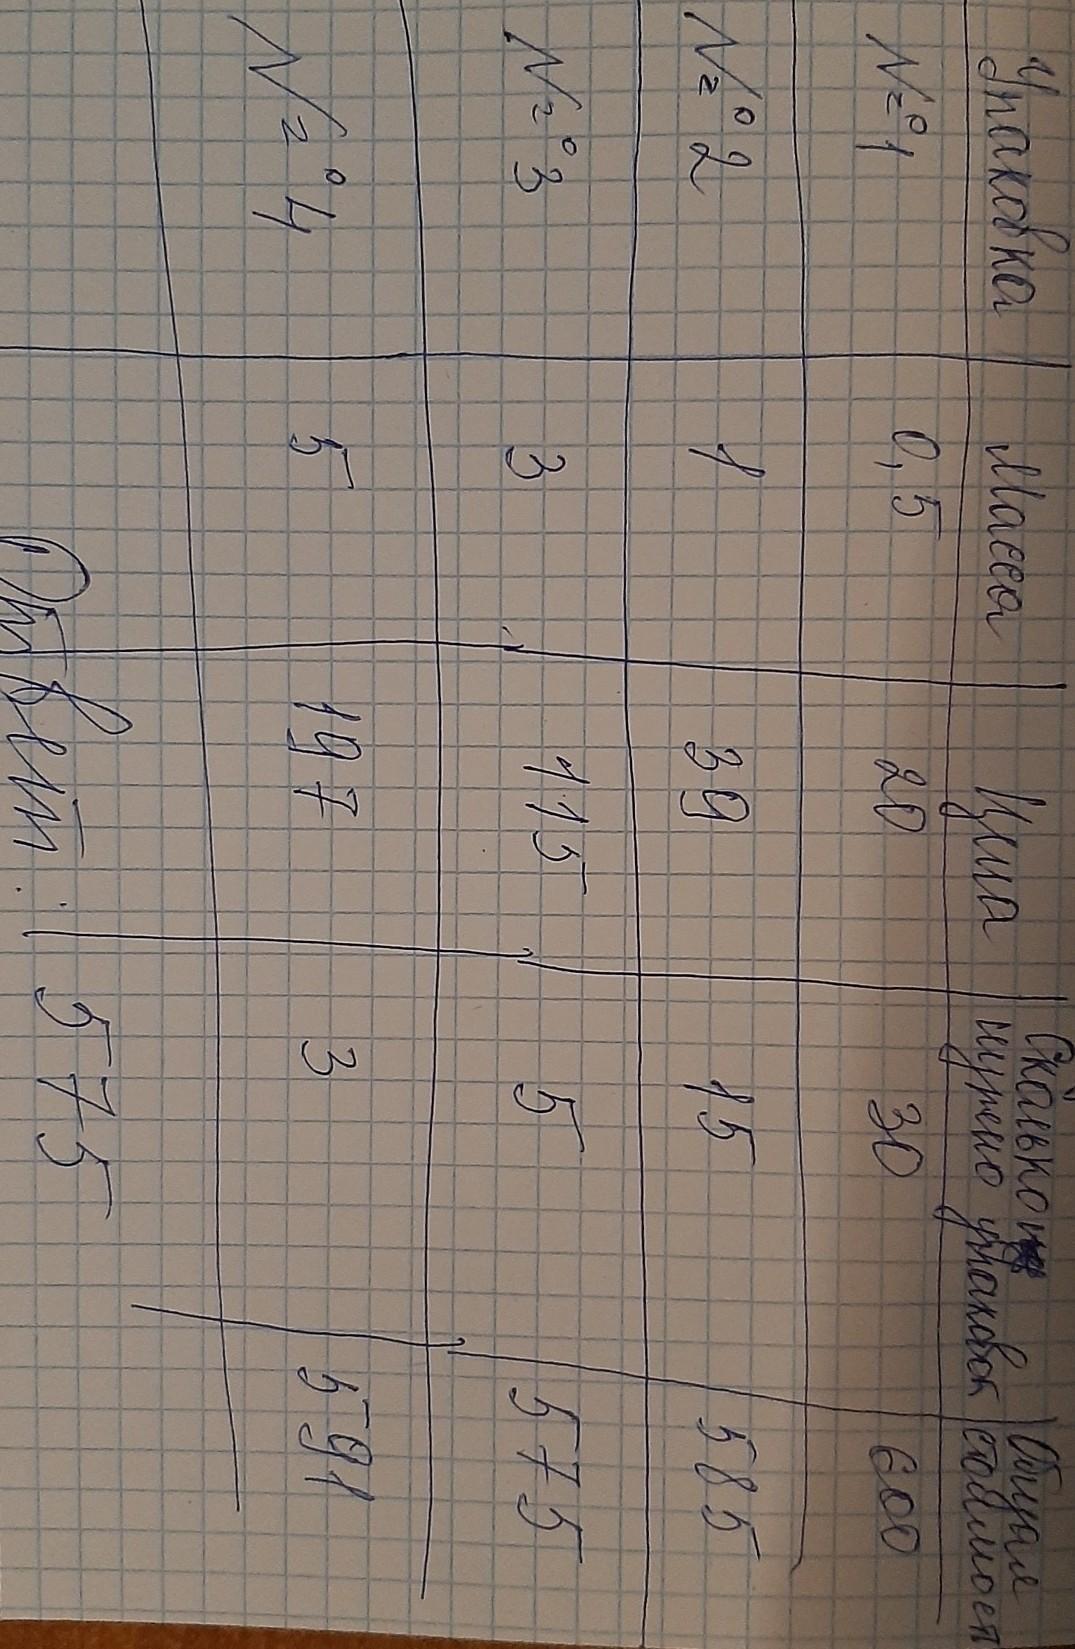 Упаковка Масса Цена Скольконужно упаковок Общая стоимост
№1 0,5 20 30 600
№2 1 39 15 585
№3 3 115 5 575
№4 5 197 3 591
Ответ: 575